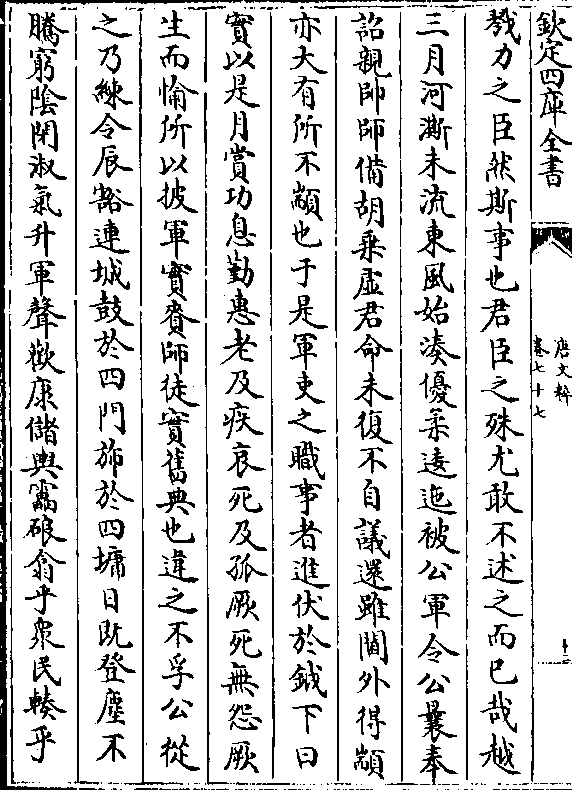 欽定四庫全書
唐文粹
卷七十七
十一
戮力之臣然斯事也君臣之殊尤敢不述之而已哉越
三月河澌未流東風始湊優柔逶迤被公軍令公曩奉
詔親帥師備胡乗虚君命未復不自議還雖閫外得顓
亦大有所不顓也于是軍吏之職事者進伏於鉞下曰
實以是月賞功息勤惠老及疾哀死及孤厥死無怨厥
生而愉所以披軍實賚師徒實舊典也違之不孚公從
之乃練令辰豁連城鼓於四門斾於四墉日既登塵不
騰窮陰閉淑氣升軍聲歡康儲輿鬵硠翕乎衆民轃乎